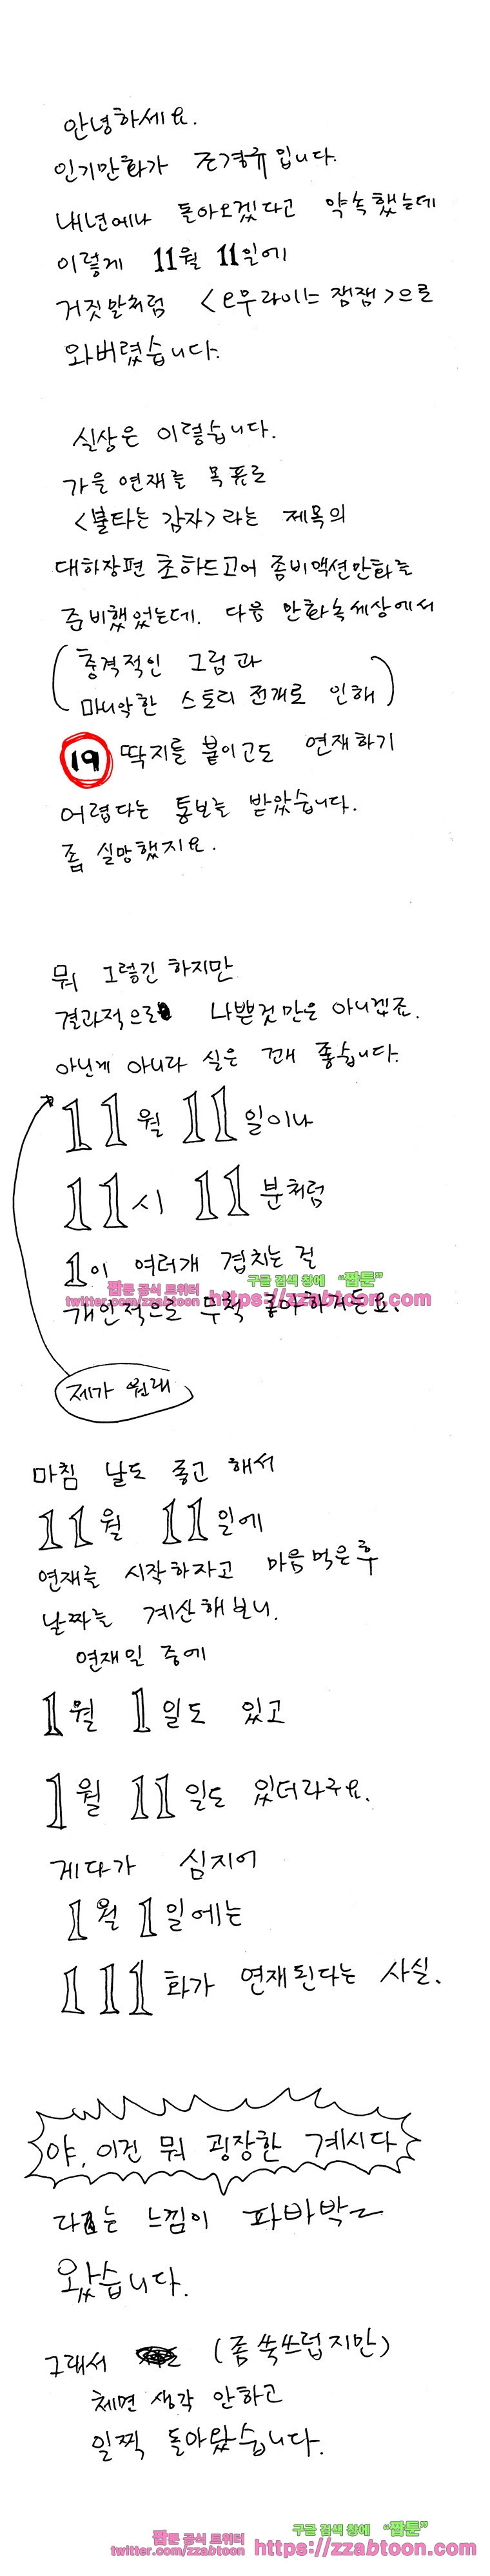 안녕하세요.
인기만화가 조경규입니다.
내년에나 돌아오겠다고 약속했는데
이렇게 11월 11일에
거짓말처럼 <오무라이스 잼잼>으로
와버렸습니다.
실상은 이렇습니다.
가을 연재를 목표로
<불타는 감자>라는 제목의
대하장편 초하드고어 좀비액션만화를
준비했었는데. 다음 만화속세상에서
(충격적인 그림과
마니악한 스토리 전개로 인해)
19 딱지를 붙이고도 연재하기
어렵다는 통보를 받았습니다.
좀 실망했지요.
뭐 그렇긴 하지만
결과적으로 나쁜것만은 아니겠죠.
아닌게 아니라 실은 꽤 좋습니다.
11월 11일이나
11시 11분처럼
1이 여러개 겹치는 걸
짭툰 공식 트위터 구글 검색 창에 “짭툰”
twitter.com/zzabtoon https://zzabtoon.com
개인적으로 무척 좋아하거든요.
제가 원래
마침 날도 좋고 해서
11월 11일에
연재를 시작하자고 마음먹은후
날짜를 계산해보니.
연재일 중에
1월 1일도 있고
1월 11일도 있더라구요.
게다가 심지어
1월 1일에는
111화가 연재된다는 사실.
야, 이건 뭐 굉장한 계시다
라는 느낌이 파바박~
왔습니다.
그래서 (좀 쑥쓰럽지만)
체면 생각 안하고
일찍 돌아왔습니다.
짭툰 공식 트위터 구글 검색 창에 “짭툰”
twitter.com/zzabtoon https://zzabtoon.com